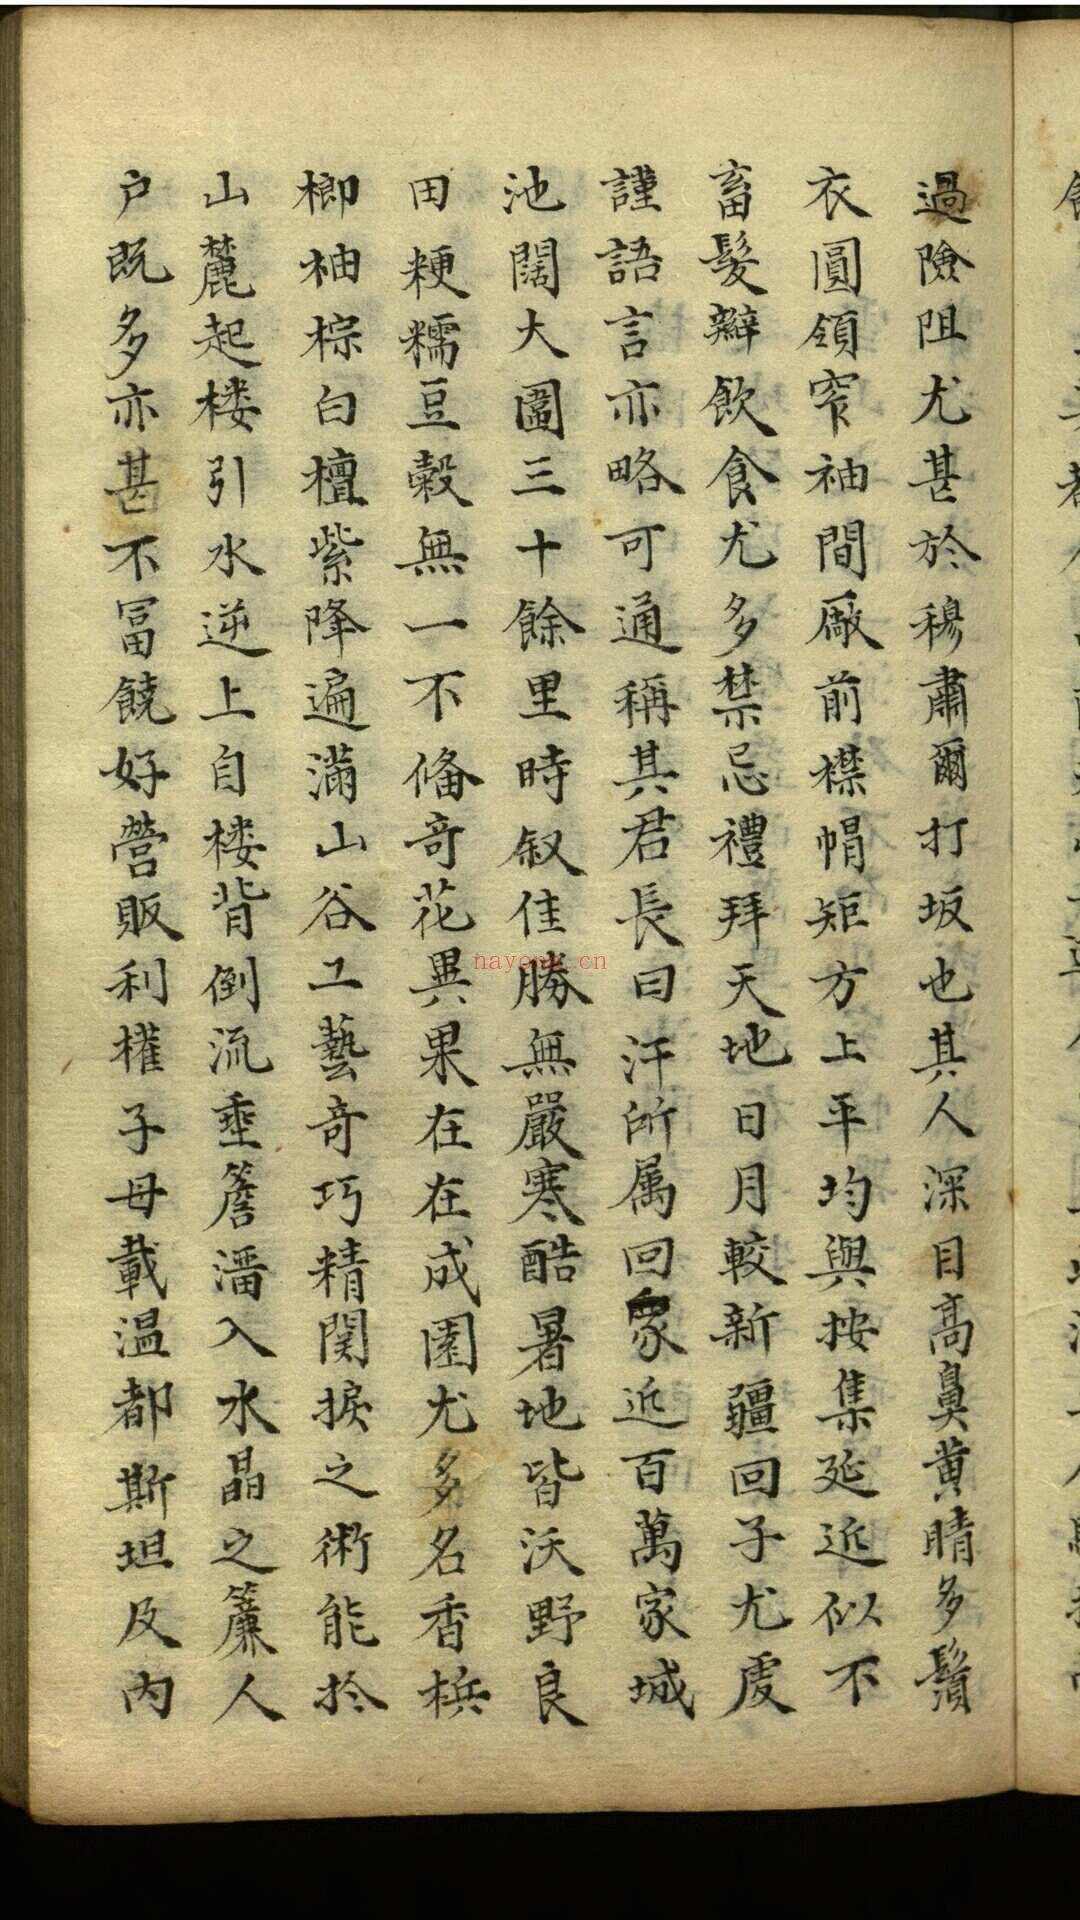 過險阻尤甚於穆肅爾打坂也其人深目高鼻黄睛多鬚
衣圓領窄袖間廠前襟帽矩方上平均與按集延近似不
畜髮辮飲食尤多禁忌禮拜天地日月較新疆回子尤虔
謹語言亦略可通稱其君長曰汗所属回衆近百萬家城
池闊大圍三十餘里時叙佳勝無嚴寒酷暑地皆沃野良
田粳糯豆穀無一不俻奇花異果在在成園尤多名香梹
榔柚棕白檀紫降遍滿山谷工藝奇巧精関捩之術能扵
山麓起楼引水逆上自楼背倒流垂簷潘入水晶之簾人
户既多亦甚不冨饒好營販利權子母載温都斯坦及内
nayona.cn